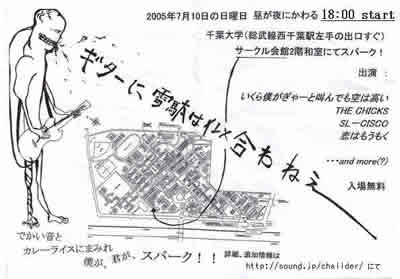 2005年7月10日の日曜日 昼が夜にかわる 18:00 start
千葉大学(総武線西千葉駅左手の出口すぐ)
サークル会館2階和室にてスパーク!
出演:
いくら僕がぎゃーと叫んでも空は高い
THE CHICKS
SL-CISCO
恋はもうもく
…and more(?)
入場無料
ギターに、雪駄は
合わねぇ
でかい音と
カレーライスにまみれ
僕が、君が、スパーク!!
詳細、追加情報は
http://sound.jp/challder/ にて